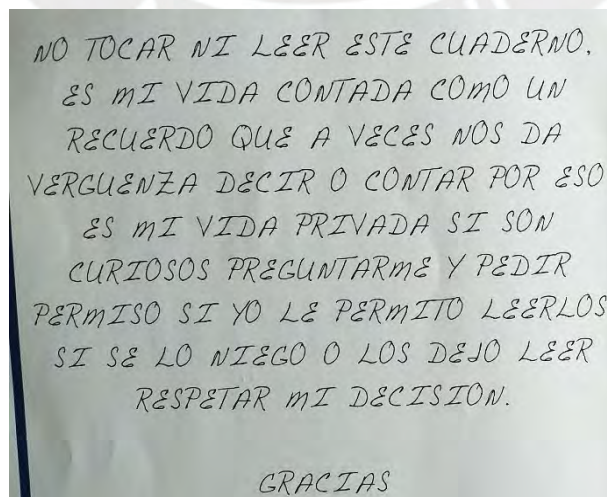 NO TOCAR NI LEER ESTE CUADERNO.
ES MI VIDA CONTADA COMO UN
RECUERDO QUE A VECES NOS DA
VERGUENZA DECIR O CONTAR POR ESO
ES MI VIDA PRIVADA SI SON
CURIOSOS PREGUNTARME Y PEDIR
PERMISO SI YO LE PERMITO LEERLOS
SI SE LO NIEGO O LOS DEJO LEER
RESPETAR MI DECISION.
GRACIAS